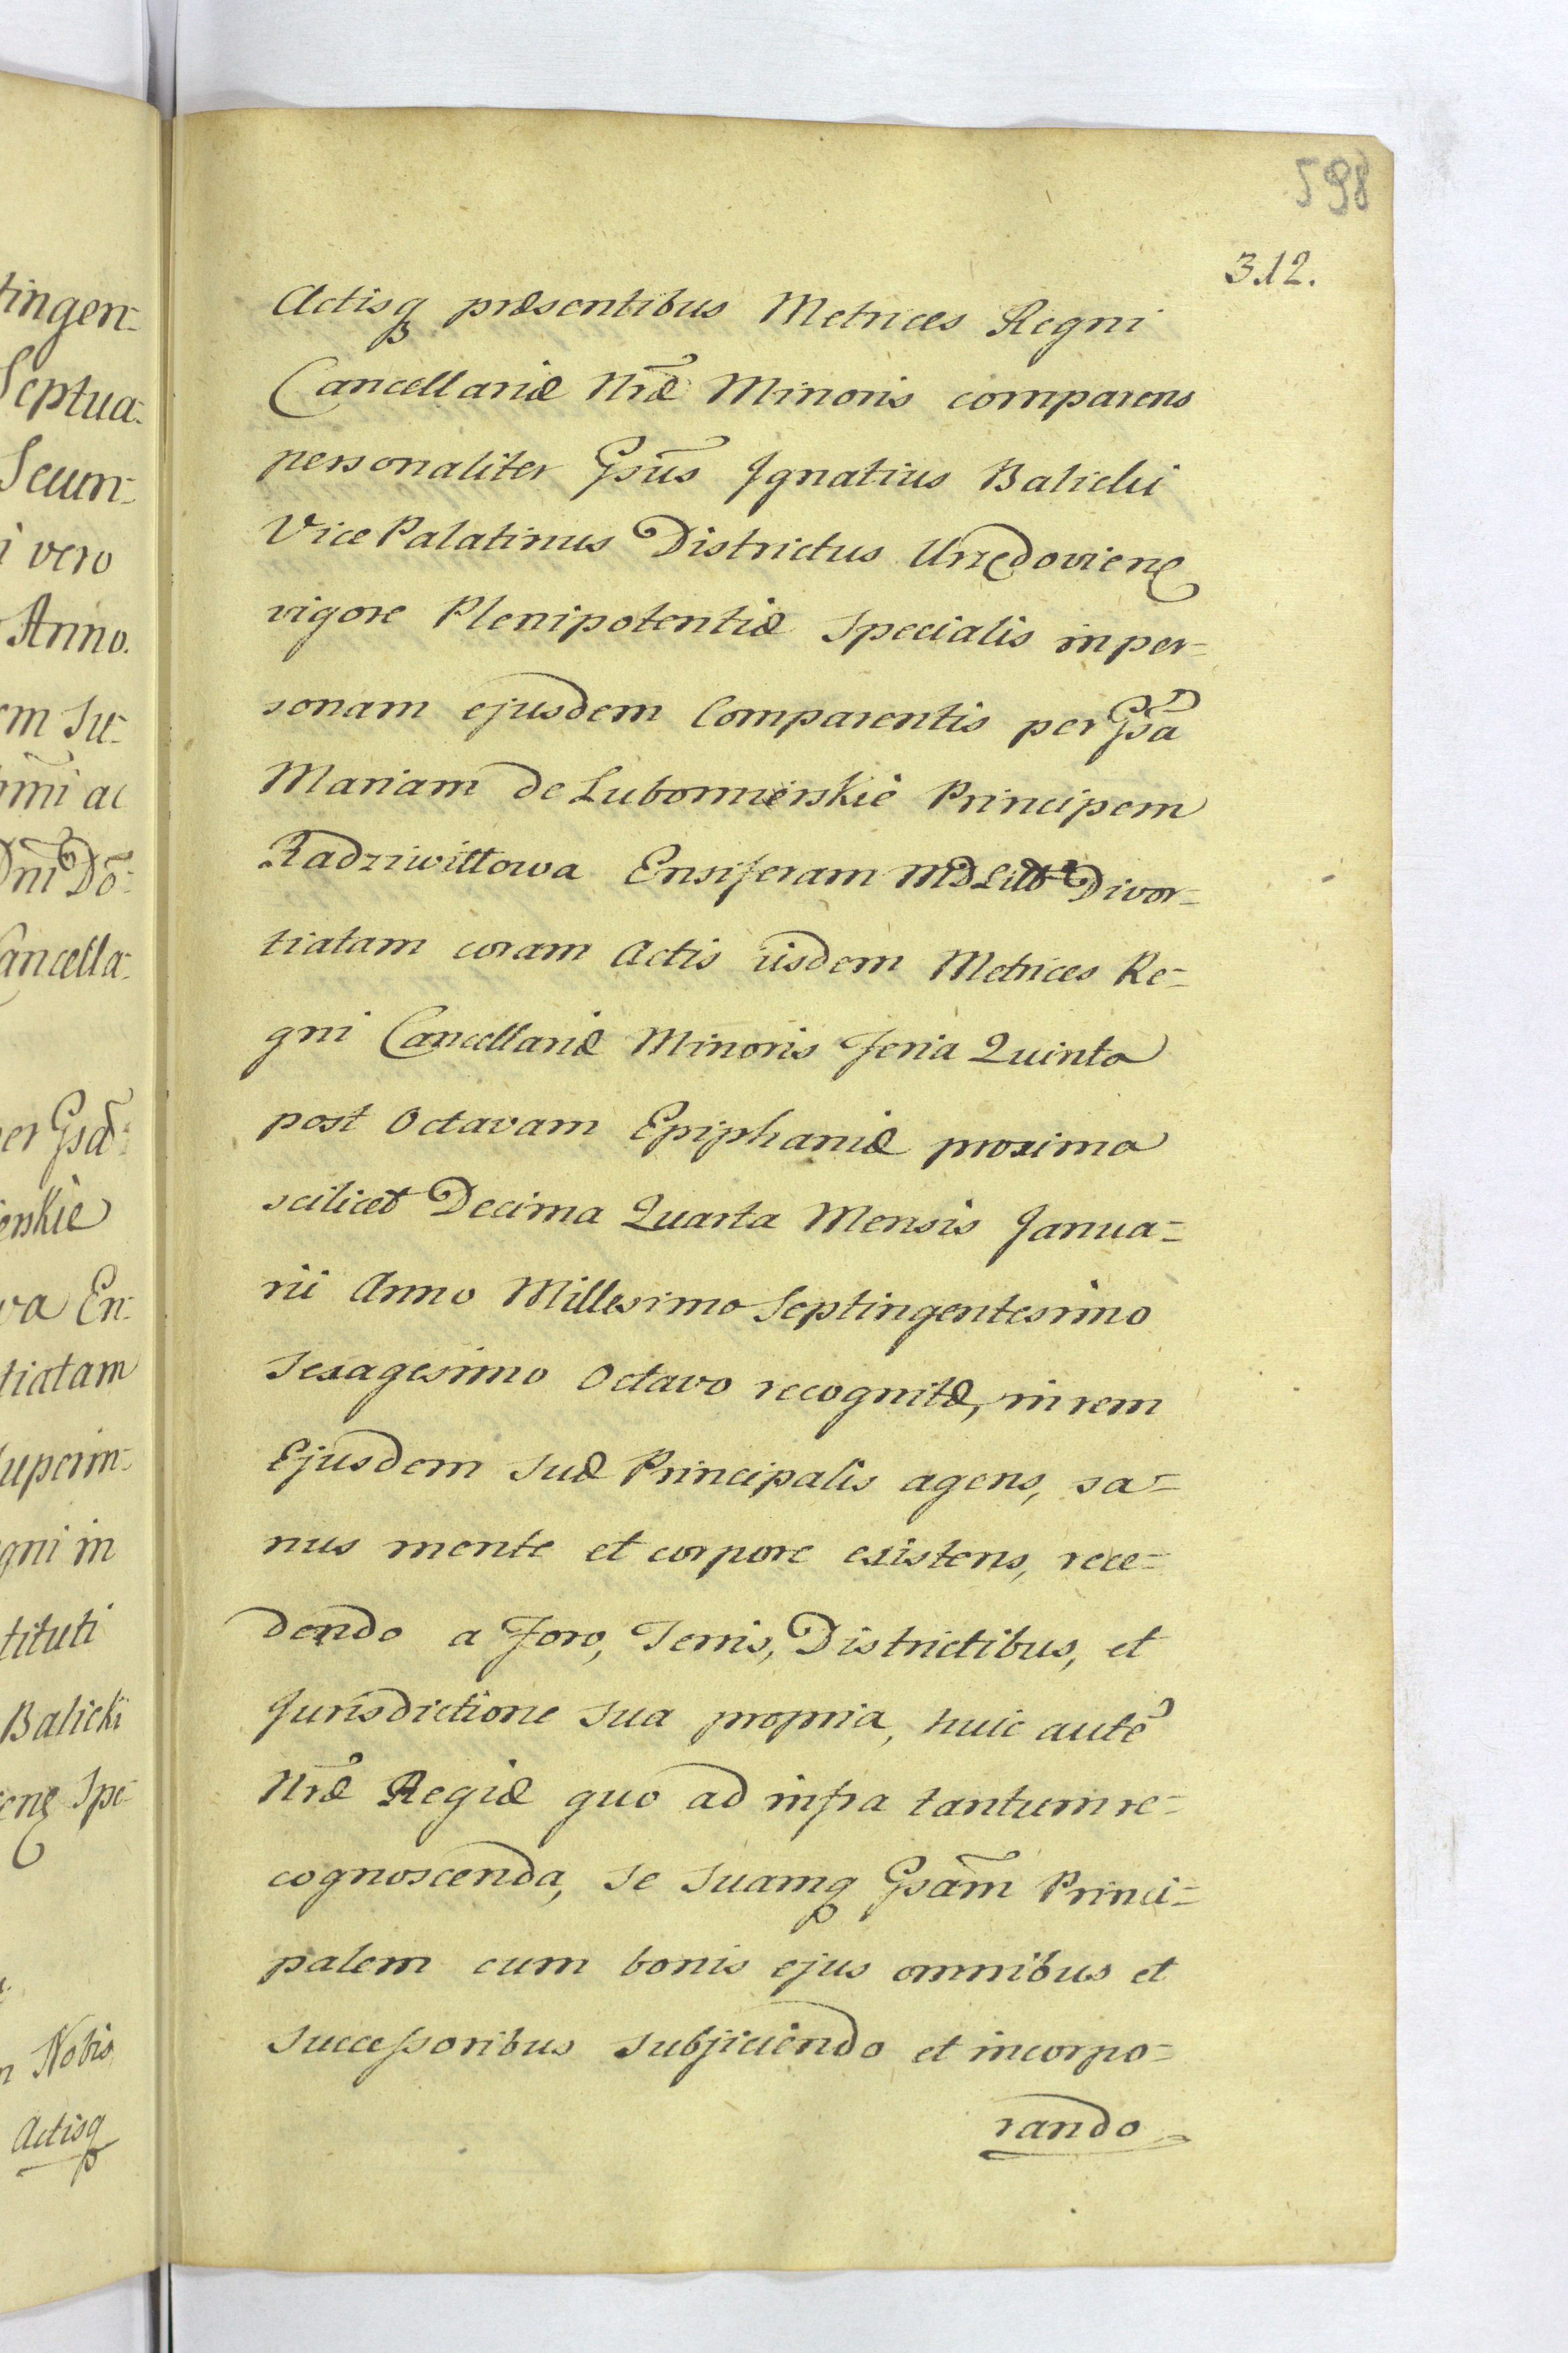 598
312.
tingen=
Septua=
Secun=
i vero
Anno.
em su=
Dnĩ Dõ=
ancella=
er Gsã=
erskie
va En=
tiatam
superin=
gni in
tituti
Balicki
enę Spe=
Nobis
Actisq
Actisq præsentibus Metrices Regni
Cancellariæ Nræ̃ Minoris comparens
personaliter Gsũs Ignatius Balicki
Vice Palatinus Districtus Urzędovienę
vigore Plenipotentiæ Specialis in per=
sonam ejusdem Comparentis per Gsã
Mariam de Lubomierskie Principem
Radziwiłłowa Ensiferam MD Litt Divor=
tiatam coram Actis iisdem Metrices Re=
gni Cancellariæ Minoris Feria Quinta
post Octavam Epiphaniæ proxima
scilicet Decima Quarta Mensis Janua=
rii Anno Millesimo Septingentesimo
Sexagesimo Octavo recognitæ, in rem
Ejusdem suæ Principalis agens, sa=
nus mente et corpore existens, rece=
dendo a Foro, Terris, Districtibus, et
Jurisdictione sua propria, huic autẽ
Nræ̃ Regiæ quo ad infra tantum re=
cognoscenda, se suamq Gsãm Princi=
palem cum bonis ejus omnibus et
successoribus subjiciendo et incorpo=
rando